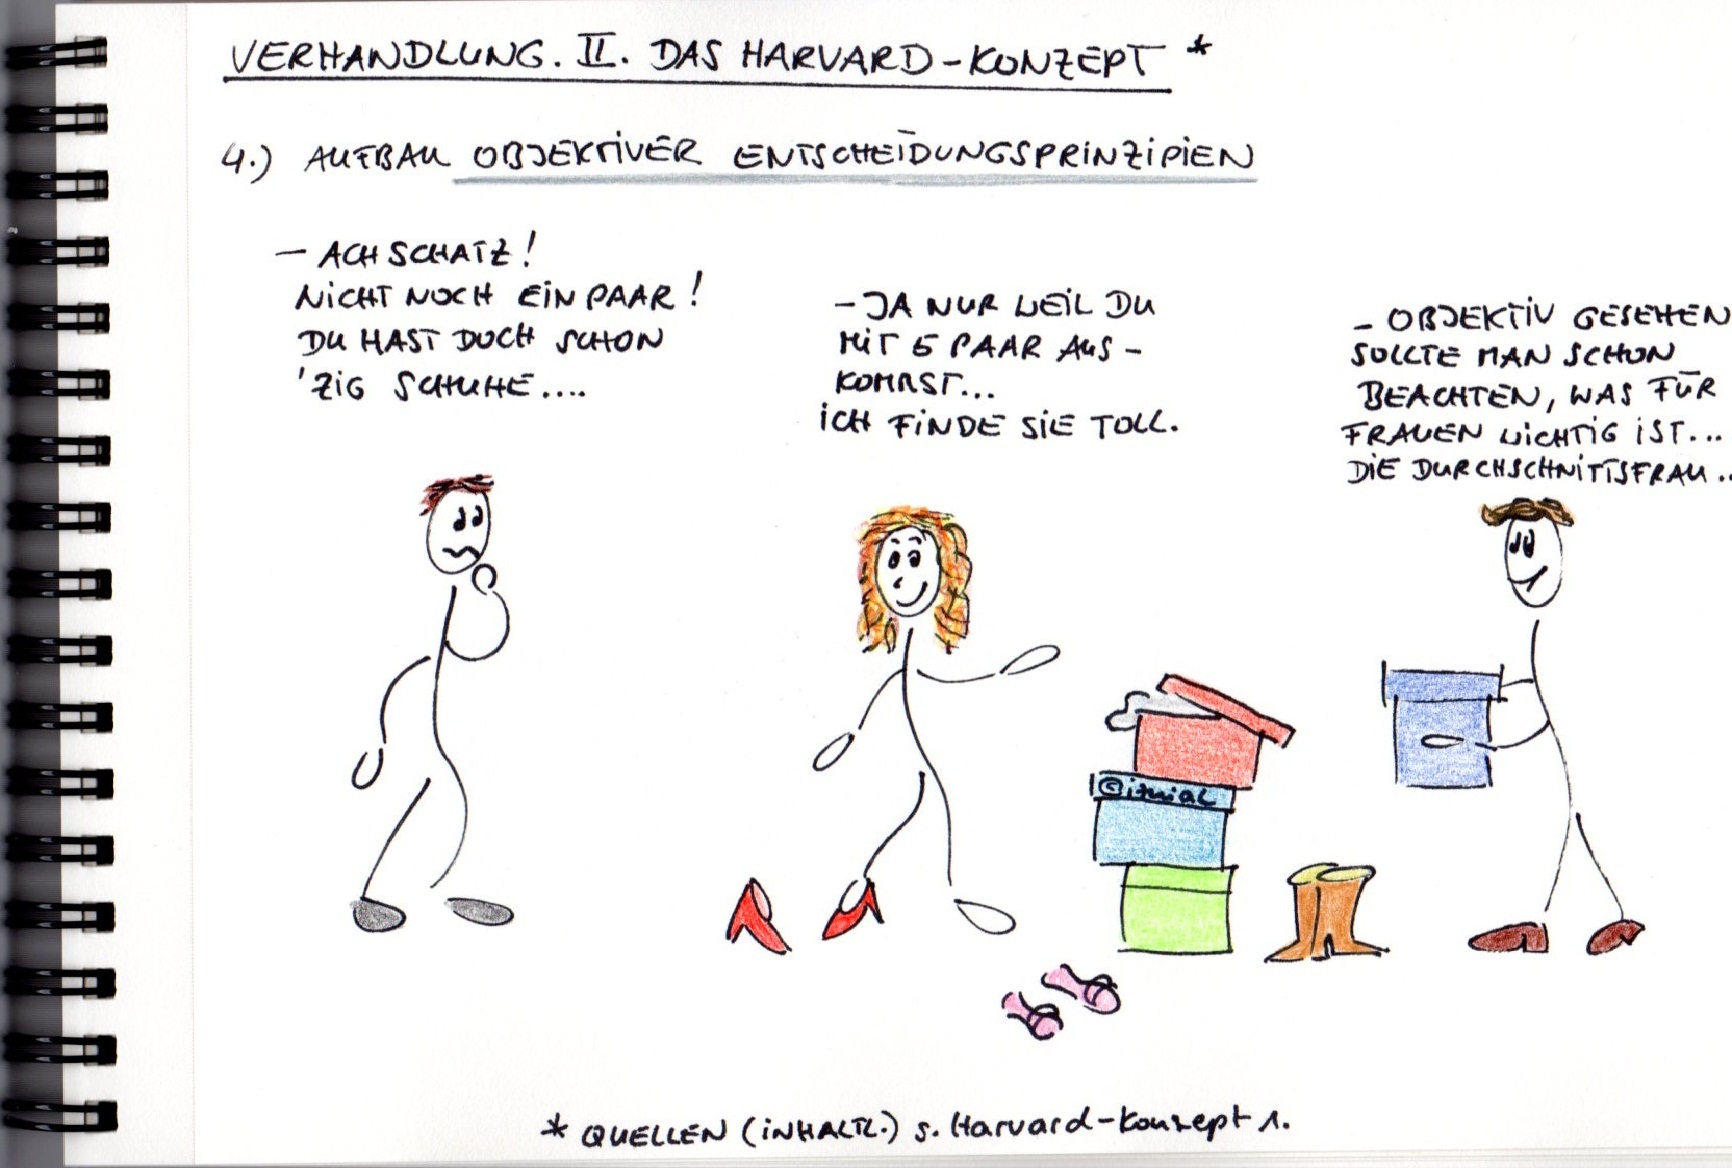 VERHANDLUNG. II. DAS HARVARD-KONZEPT *
4.) AUFBAU OBJEKTIVER ENTSCHEIDUNGSPRINZIPIEN
- ACH SCHATZ!
NICHT NOCH EIN PAAR!
DU HAST DOCH SCHON
'ZIG SCHUHE....
- JA NUR WEIL DU
MIT 5 PAAR AUS-
KOMMST...
ICH FINDE SIE TOLL.
- OBJEKTIV GESEHEN
SOLLTE MAN SCHON
BEACHTEN, WAS FÜR
FRAUEN WICHTIG IST...
DIE DURCHSCHNITTSFRAU..
* QUELLEN (INHALTL.) s. Harvard-Konzept 1.